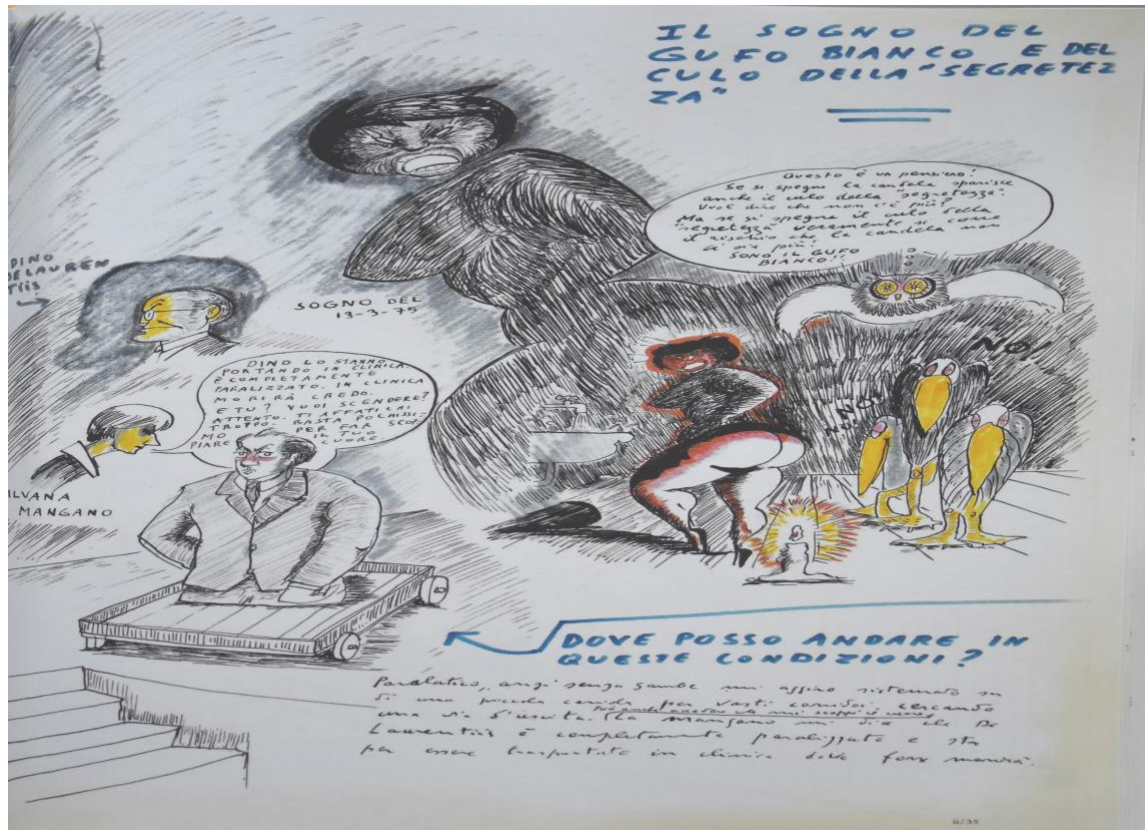 IL SOGNO DEL
GUFO BIANCO E DEL
CULO DELLA "SEGRETEZ
ZA"
Questo è un pensiero!
Se si spegne la candela sparisce
anche il culo della "segretezza".
Vuol dire che non c'è più?
Ma se si spegne il culo della
"segretezza" veramente si corre
il rischio che la candela non
ci sia più!
SONO IL GUFO
BIANCO!
DINO
DELAUREN
TIIS
SOGNO DEL
13-3-75
NO!
NO!
DINO LO STANNO
PORTANDO IN CLINICA
È COMPLETAMENTE
PARALIZZATO. IN CLINICA
MORIRÀ CREDO.
E TU? VUOI SCENDERE?
ATTENTO. TI AFFATICAI
TROPPO. BASTA POCHISSI
MO PER FAR SCOP
PIARE IL TUO
CUORE.
ILVANA
MANGANO
DOVE POSSO ANDARE IN
QUESTE CONDIZIONI?
Paralitico, anzi senza gambe mi aggiro sistemato su
di una piccola carriola per vasti corridoi cercando
una via d'uscita. La Mangano mi dice che De
Laurentiis è completamente paralizzato e sta
per essere trasportato in clinica dove forse morirà.
11/33